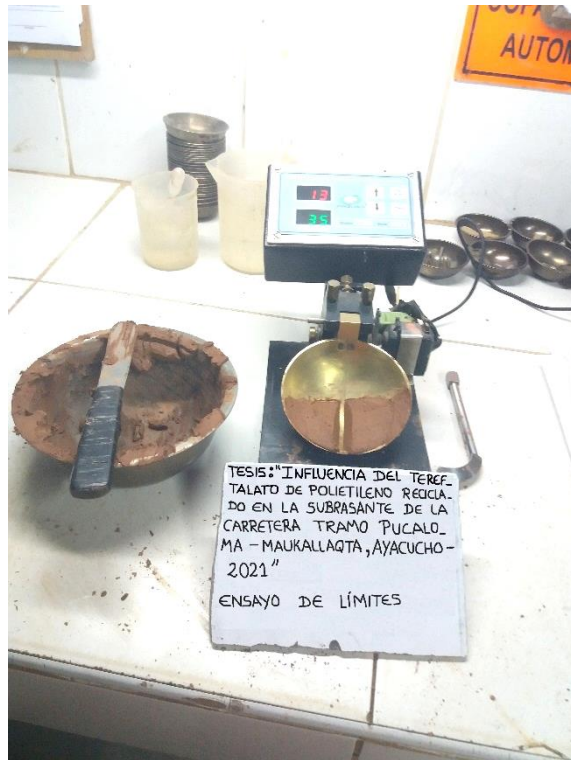 AUTOM
13
35
TESIS: "INFLUENCIA DEL TEREF_
TALATO DE POLIETILENO RECICLA_
DO EN LA SUBRASANTE DE LA
CARRETERA TRAMO PUCALO_
MA - MAUKALLAQTA, AYACUCHO-
2021"
ENSAYO DE LÍMITES